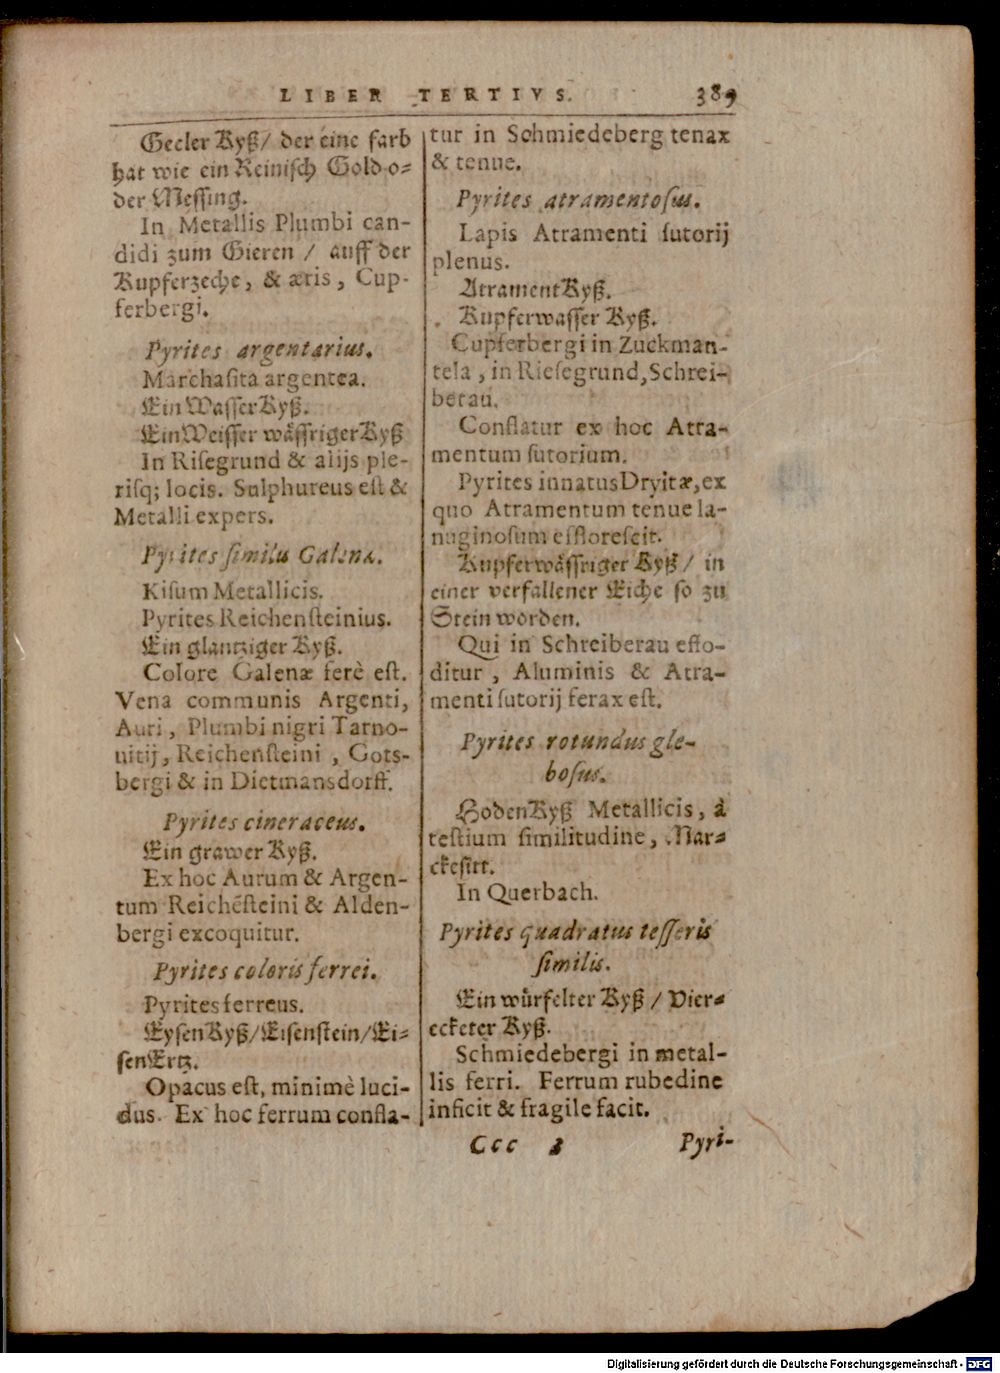 LIBER TERTIVS. 389
Geeler Kyß/ der eine farb
hat wie ein Reinisch Gold o⸗
der Messing.
In Metallis Plumbi can-
didi zum Gieren / auff der
Kupferzeche, & æris, Cup-
ferbergi.
Pyrites argentarius.
Marchasita argentea.
Ein Wasser Kyß.
Ein Weisser wässriger Kyß
In Risegrund & alijs ple-
risq; locis. Sulphureus est &
Metalli expers.
Pyrites similis Galenæ.
Kisum Metallicis.
Pyrites Reichensteinius.
Ein glantziger Kyß.
Colore Galenæ ferè est.
Vena communis Argenti,
Auri, Plumbi nigri Tarno-
uitij, Reichensteini, Gots-
bergi & in Dietmansdorff.
Pyrites cineraceus.
Ein grawer Kyß.
Ex hoc Aurum & Argen-
tum Reichẽsteini & Alden-
bergi excoquitur.
Pyrites coloris ferrei.
Pyrites ferreus.
Eysen Kyß/Eisenstein/Ei⸗
sen Ertz.
Opacus est, minimè luci-
dus. Ex hoc ferrum confla-
tur in Schmiedeberg tenax
& tenue.
Pyrites atramentosus.
Lapis Atramenti sutorij
plenus.
Atrament Kyß.
Kupferwasser Kyß.
Cupferbergi in Zuckman-
tela, in Riesegrund, Schrei-
berau.
Conflatur ex hoc Atra-
mentum sutorium.
Pyrites innatus Dryitæ, ex
quo Atramentum tenue la-
nuginosum efflorescit.
Kupferwässriger Kyß/ in
einer verfallener Eiche so zu
Stein worden.
Qui in Schreiberau effo-
ditur, Aluminis & Atra-
menti sutorij ferax est.
Pyrites rotundus gle-
bosus.
Hoden Kyß Metallicis, à
testium similitudine, Mar⸗
ckesitt.
In Querbach.
Pyrites quadratus tesseris
similis.
Ein würfelter Kyß / Vier⸗
ecketer Kyß.
Schmiedebergi in metal-
lis ferri. Ferrum rubedine
inficit & fragile facit.
Ccc 3 Pyri-
Digitalisierung gefördert durch die Deutsche Forschungsgemeinschaft - DFG